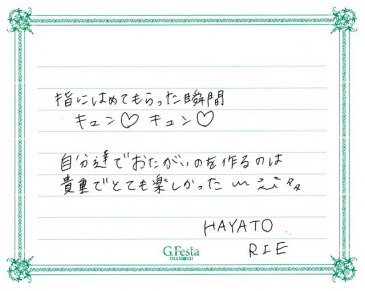 指にはめてもらった瞬間
キュン♡ キュン♡
自分達でおたがいのを作るのは
貴重でとても楽しかった
HAYATO
RIE
G.Festa
DIAMOND